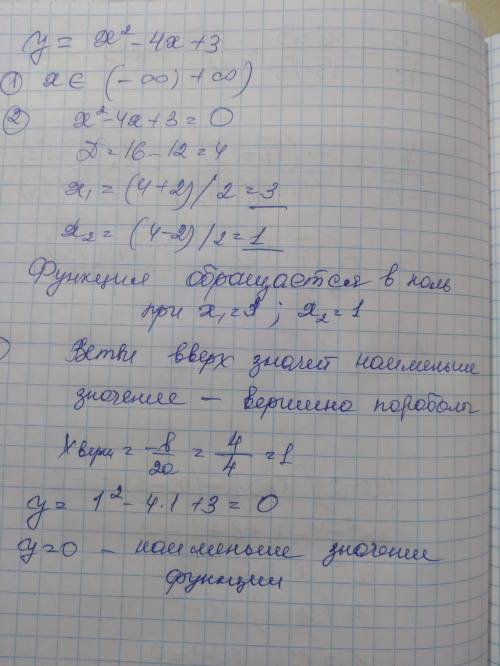 y = x² - 4x + 3
① x ∈ (-∞) +∞)
② x² - 4x + 3 = 0
D = 16 - 12 = 4
x₁ = (4+2)/2 = 3
x₂ = (4-2)/2 = 1
Функция обращается в ноль
при x₁=3 ; x₂=1
Ветви вверх значит наименьше
значение – вершина параболы
X верш = -b/2a = 4/4 = 1
y = 1² - 4·1 + 3 = 0
y=0 – наименьше значение
функции